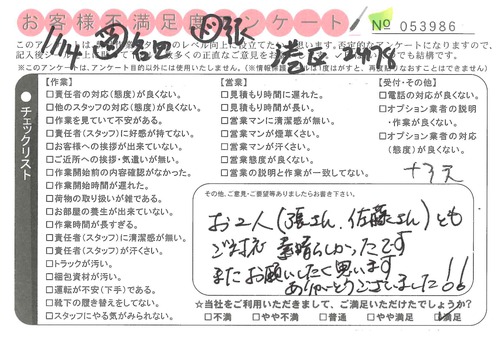 お客様不満足度アンケート
№ 053986
11/14
張
港区
このア
のレベル向上に役立て
思います。否定的なアンケートになりますので、
記入後シール
数多くの正直なご意見をお
でも結構です。
※このアンケートは、アンケート目的以外には使いいたしません。
チェックリスト
【作業】
□責任者の対応(態度)が良くない。
□他のスタッフの対応(態度)が良くない。
□作業を見ていて不安がある。
□責任者(スタッフ)に好感が持てない。
□お客様への挨拶が出来ていない。
□ご近所への挨拶・気遣いが無い。
□作業開始前の内容確認がなかった。
□作業開始時間が遅れた。
□荷物の取り扱いが雑である。
□お部屋の養生が出来ていない。
□作業時間が長すぎる。
□責任者(スタッフ)に清潔感が無い。
□責任者(スタッフ)が汗くさい。
□トラックが汚い。
□梱包資材が汚い。
□運転が不安(下手)である。
□靴下の履き替えをしてない。
□スタッフにやる気がみられない。
【営業】
□見積もり時間に遅れた。
□見積もり時間が長い。
□営業マンに清潔感が無い。
□営業マンが煙草くさい。
□営業マンが汗くさい。
□営業態度が良くない。
□営業の説明と作業が一致してない。
【受付・その他】
□電話の対応が良くない。
□オプション業者の説明
・作業が良くない。
□オプション業者の対応
(態度)が良くない。
その他、ご意見・ご要望等ありましたらお書き下さい。
お2人(張さん、佐藤さん)とも
ご対応 素晴らしかったです
またお願いしたく思います
ありがとうございました!!
☆当社をご利用いただきまして、ご満足いただけたでしょうか?
□不満 □やや不満 □普通 □やや満足 □満足